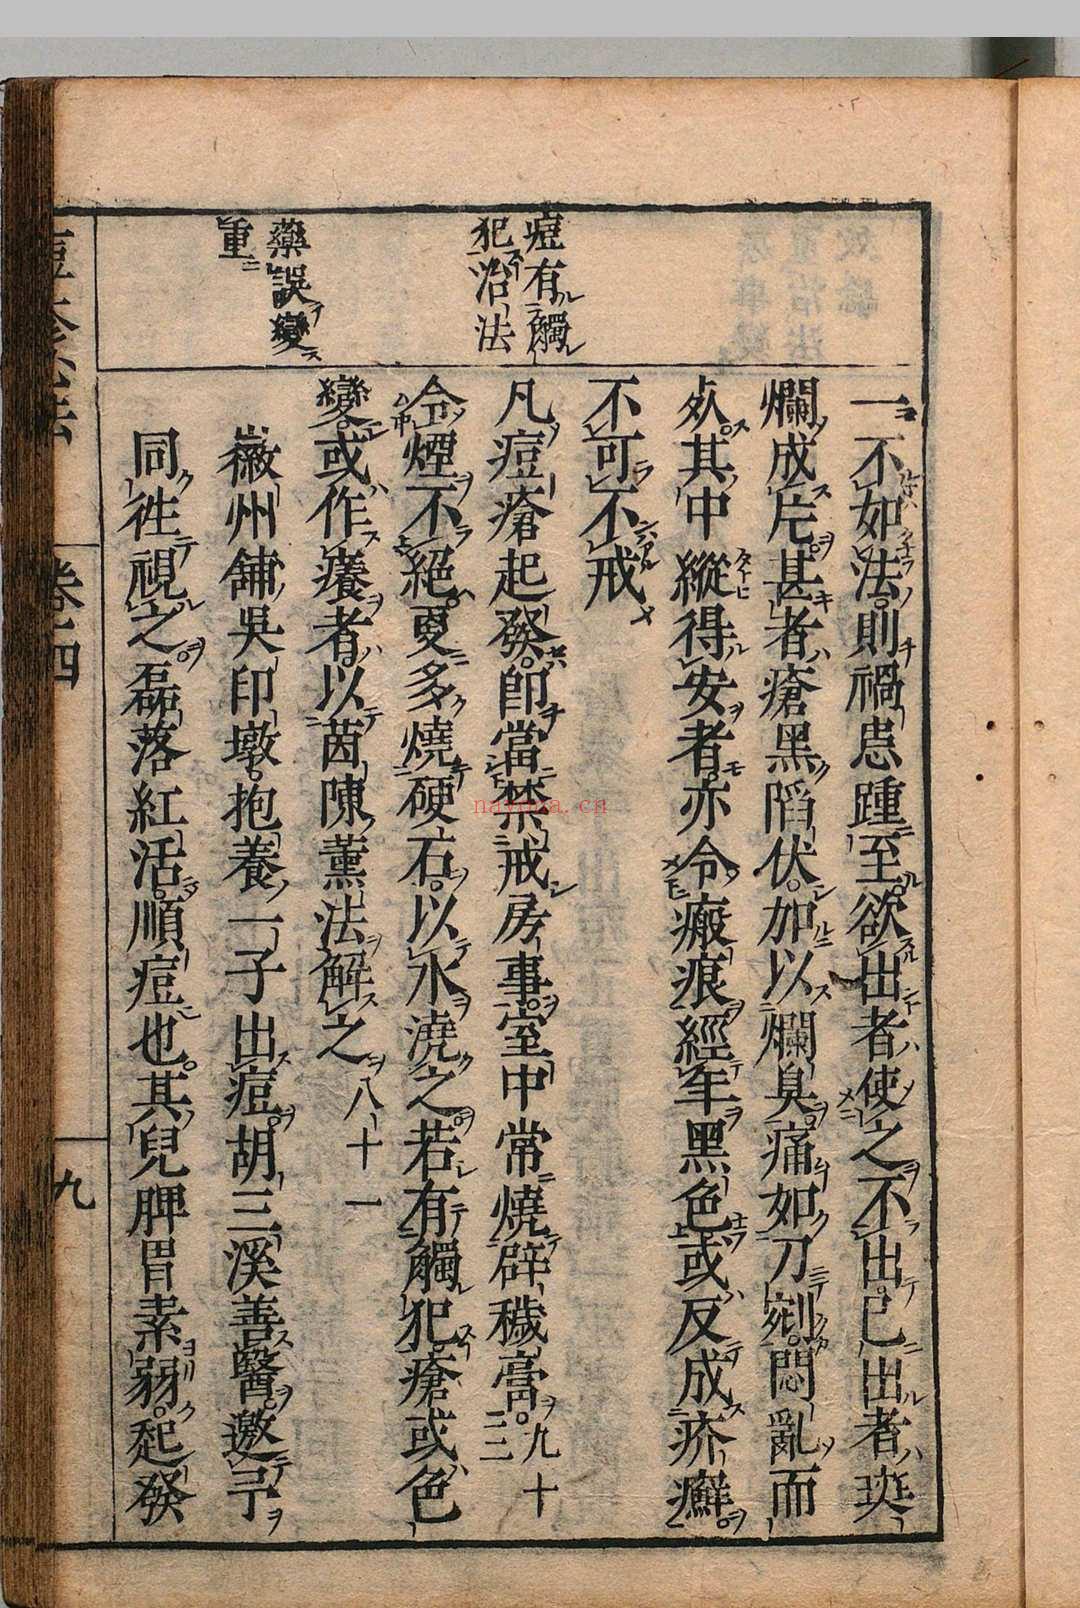 痘有觸
犯治法
藥誤變
重
一不如法則禍患踵至欲出者使之不出已出者斑
爛成片甚者瘡黑陷伏加以爛臭痛如刀剜悶亂而
死其中縱得安者亦令瘢痕經年黑色或反成疥癬
不可不戒
凡痘瘡起發即當禁戒房事室中常燒辟穢膏九十三
令煙不絕更多燒硬石以水澆之若有觸犯瘡或色
變或作癢者以茵陳薰法解之八十一
徽州舖吳印墩抱養一子出痘胡三溪善醫邀予
同徃視之磊落紅活順痘也其兒脾胃素弱起發
卷之四
九
nayona.cn